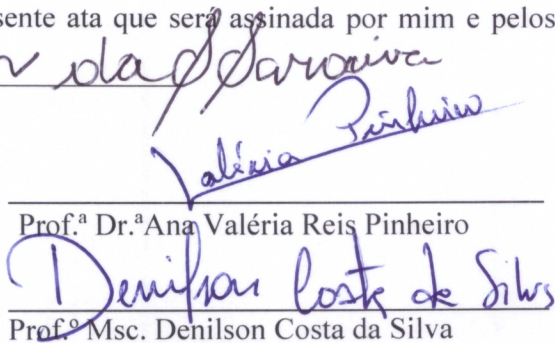 sente ata que será assinada por mim e pelos
da S Saraiva
Valéria Pinheiro
Prof.ª Dr.ªAna Valéria Reis Pinheiro
Denilson Costa da Silva
Prof.º Msc. Denilson Costa da Silva